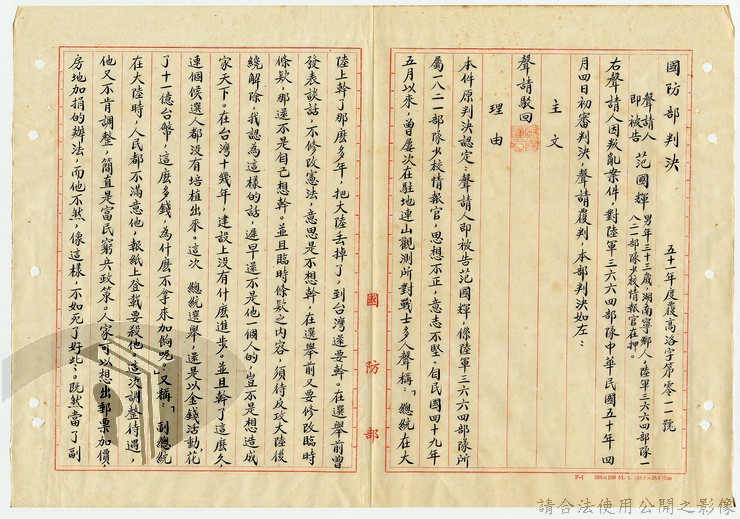 國防部判決　五十一年度覆高洛字第零一一號
聲請人即被告　范國輝　男年三十三歲，湖南寧鄉人，陸軍三六六四部隊一八二一部隊少校情報官在押。
右聲請人因叛亂案件，對陸軍三六六四部隊中華民國五十年四
月四日初審判決，聲請覆判，本部判決如左：
主文
聲請駁回
理由
本件原判決認定：聲請人即被告范國輝，係陸軍三六六四部隊所
屬一八二一部隊少校情報官，思想不正，意志不堅。自民國四十九年
五月以來，曾屢次在駐地連山觀測所對戰士多人聲稱：「總統在大
國防部
陸上幹了那麼多年，把大陸丟掉了，到台灣還要幹。在選舉前曾
發表談話，不修改憲法，意思是不想幹，在選舉前又要修改臨時
條款，那還不是自己想幹。並且臨時條款之內容，須待反攻大陸後
纔解除，我認為這樣的話，遲早還不是他一個人的，豈不是想造成
家天下。在台灣十幾年，建設上沒有什麼進步。並且幹了這麼久，
連個候選人都沒有培植出來。這次　總統選舉，還是以金錢活動，花
了十一億台幣，這麼多錢，為什麼不拿來加餉呢。」又稱：「副總統
在大陸時，人民都不滿意他，報紙上登載要殺他。這次調整待遇，
他又不肯調整，簡直是富民窮兵政策。人家可以想出郵票加價，
房地加捐的辦法，而他不然，像這樣，不如死了好些。既然當了副
F-1
請合法使用公開之影像